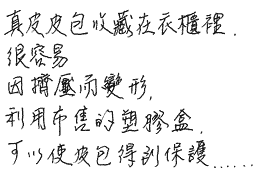 真皮皮包收藏在衣櫃裡.
很容易
因擠壓而變形,
利用市售的塑膠盒,
可以使皮包得到保護......